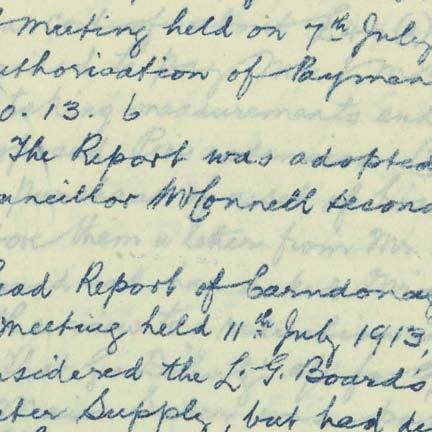 Meeting held on 7th July
uthorisation of Paymen
0. 13. 6
The Report was adopted
ouncillor McConnell second
ead Report of Carndonag
meeting held 11th July 1913,
nsidered the L. G. Board's
ter Supply, but had de